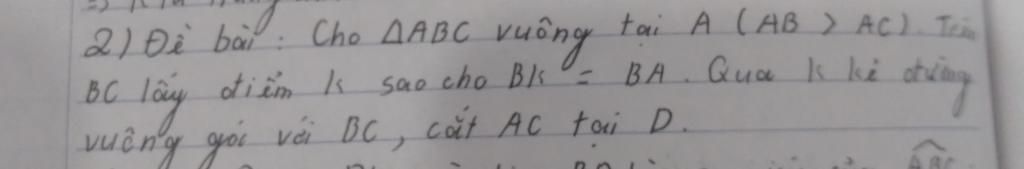 2) Đề bài: Cho ΔABC vuông tại A (AB > AC). Trên
BC lấy điểm K sao cho BK = BA. Qua K kẻ đường
vuông góc với BC, cắt AC tại D.
ABC